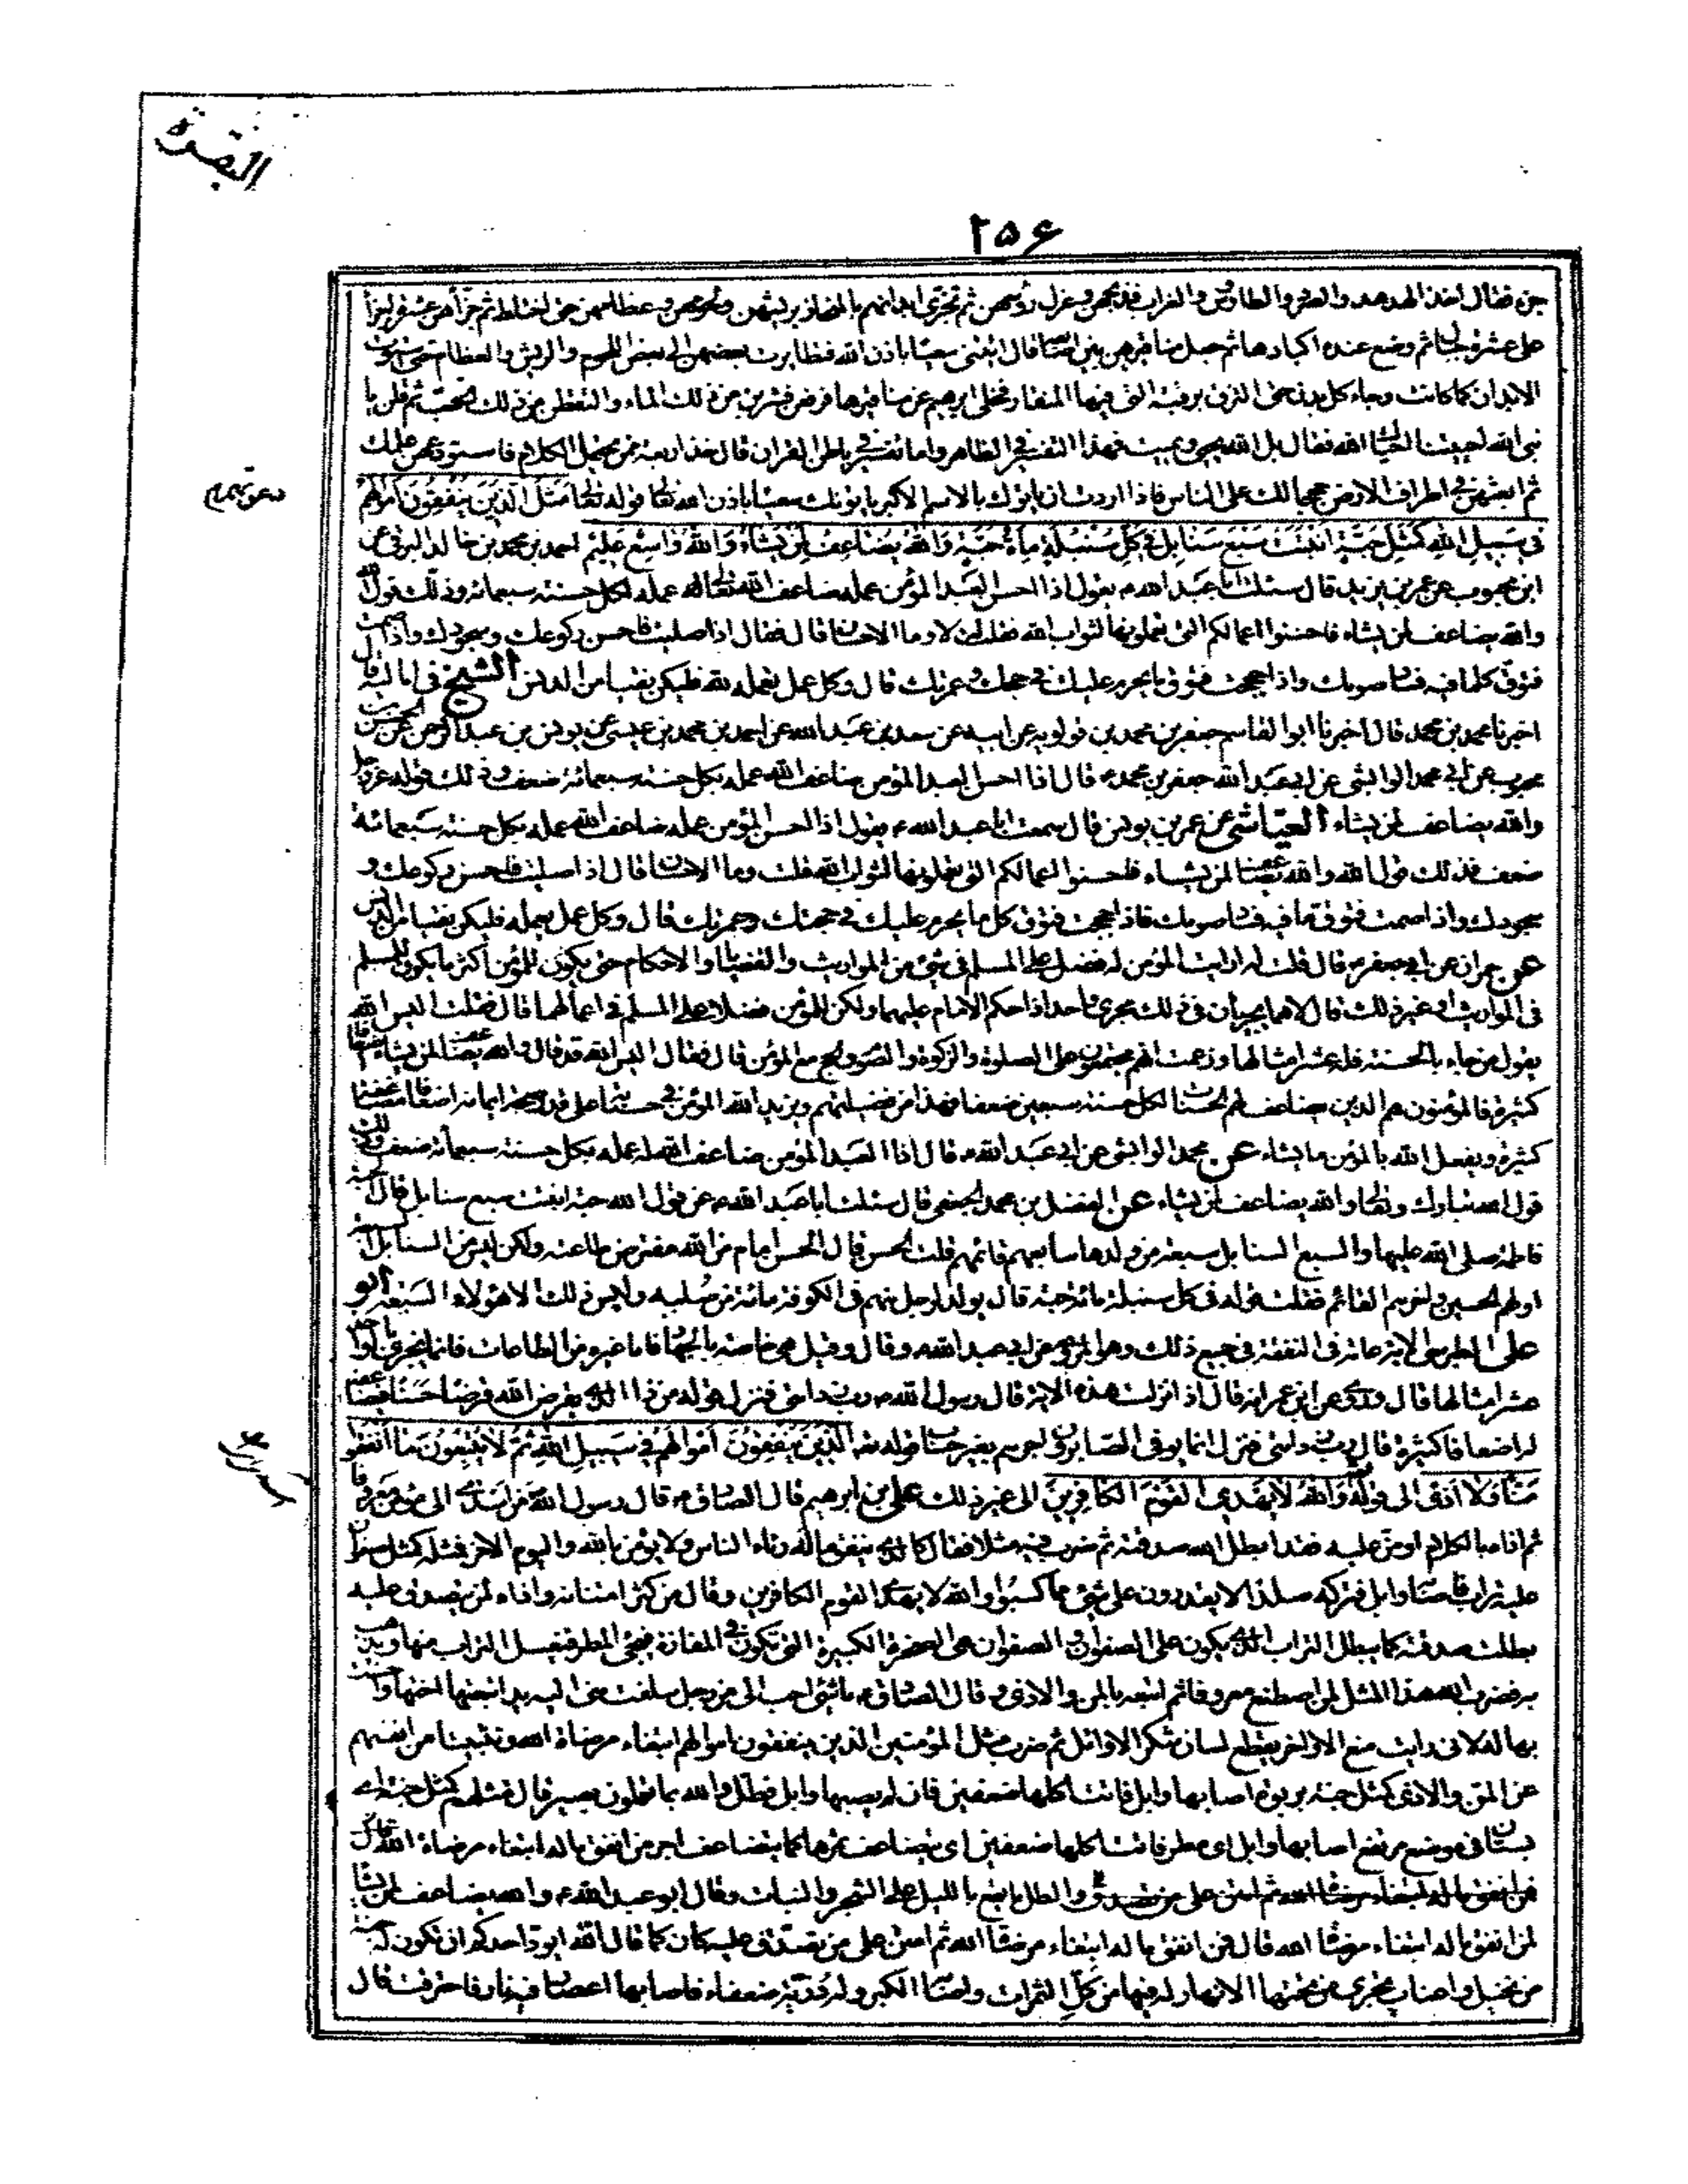 البقرة
٢٥٦
فقال اخذ الهدهد والصرد والطاوس والغراب فذبحهن وعزل رؤسهن ثم نحز ابدانهن بالمنحاز بريشهن ولحومهن وعظامهن حتى اختلط ثم جزأهن عشرة اجزاء
على عشرة جبال ثم وضع عنده اكبادها ثم جعل مناقيرهن بين اصابعه قال ائتيني سعيا باذن الله فتطايرت بعضهن الى بعض اللحوم والريش والعظام حتى استوت
الابدان كما كانت وجاء كل بدن حتى التزق برقبته التي فيها المنقار فخلى ابرهيم عن مناقيرها فرفعن فشربن من ذلك الماء والتقطن من ذلك الحب ثم قلن يا
نبي الله احييتنا احياك الله فقال بل الله يحيي ويميت فهذا التفسير في الظاهر واما تفسيره في باطن القران قال خذ اربعة ممن يحتمل الكلام فاستودعهن علمك
ثم ابعثهن في اطراف الارض حججا لك على الناس فاذا اردت ان ياتوك بالاسم الاكبر ياتونك سعيا باذن الله تعالى قوله تعالى مَثَلُ الَّذِينَ يُنْفِقُونَ اَمْوالَهُمْ
دعوتهم
فى سَبِيلِ اللّهِ كَمَثَلِ حَبَّةٍ اَنْبَتَتْ سَبْعَ سَنَابِلَ فِى كُلِّ سُنْبُلَةٍ مِائَةُ حَبَّةٍ وَاللّهُ يُضَاعِفُ لِمَنْ يَشَاءُ وَاللّهُ وَاسِعٌ عَلِيمٌ احمد بن محمد بن خالد البرقى عن
ابن محبوب عن عمر بن يزيد قال سمعت ابا عبد الله ع يقول اذا احسن العبد المؤمن عمله ضاعف الله تعالى له عمله لكل حسنة سبعمائة وذلك قول الله
والله يضاعف لمن يشاء فاحسنوا اعمالكم التى تعملونها لثواب الله فقلت له وما الاحسان قال فقال اذا صليت فاحسن ركوعك وسجودك واذا صمت
فتوق كلما فيه فساد صومك واذا حججت فتوق ما يحرم عليك في حجك وعمرتك قال وكل عمل تعمله لله فليكن نقيا من الدنس الشيخ فى اماليه قال
اخبرنا محمد بن محمد قال اخبرنا ابو القاسم جعفر بن محمد بن قولويه عن ابيه عن سعد بن عبد الله عن احمد بن محمد بن عيسى عن يونس بن عبد الرحمن عن الحسن بن
محبوب عن ابي محمد الوابشى عن ابى عبد الله جعفر بن محمد ع قال اذا احسن العبد المؤمن ضاعف الله عمله بكل حسنة سبعمائة ضعف وذلك قوله عز وجل
والله يضاعف لمن يشاء العياشى عن عمر بن يونس قال سمعت ابا عبد الله ع يقول اذا احسن المؤمن عمله ضاعف الله عمله بكل حسنة سبعمائة
ضعف فذلك قول الله والله يضاعف لمن يشاء فاحسنوا اعمالكم التى تعملونها لثواب الله قلت وما الاحسان قال اذا صليت فاحسن ركوعك و
سجودك واذا صمت فتوق ما فيه فساد صومك فاذا حججت فتوق كل ما يحرم عليك في حجتك وعمرتك قال وكل عمل تعمله فليكن نقيا من الدنس
عن حمران عن ابى جعفر ع قال قلت له ارايت المؤمن له فضل على المسلم فى شئ من المواريث والقضايا والاحكام حتى يكون للمؤمن اكثر مما يكون للمسلم
فى المواريث او غير ذلك قال لا هما يجريان فى ذلك مجرى واحدا اذا حكم الامام عليهما ولكن للمؤمن فضلا على المسلم فى اعمالهما قال فقلت اليس الله
يقول من جاء بالحسنة فله عشر امثالها وزعمت انهم مجتمعون على الصلوة والزكوة والصوم والحج مع المؤمن قال فقال اليس الله قد قال والله يضاعف لمن يشاء اضعافا
كثيرة فالمؤمنون هم الذين يضاعف لهم الحسنات لكل حسنة سبعين ضعفا فهذا من فضيلتهم ويزيد الله المؤمن فى حسناته على قدر صحة ايمانه اضعافا مضاعفة
كثيرة ويفعل الله بالمؤمن ما يشاء عن محمد الوابشى عن ابى عبد الله ع قال اذا احسن العبد المؤمن ضاعف الله له عمله بكل حسنة سبعمائة ضعف وذلك
قول الله تبارك وتعالى والله يضاعف لمن يشاء عن المفضل بن محمد الجعفى قال سئلت ابا عبد الله ع عن قول الله حبة انبتت سبع سنابل قال الحبة
فاطمة صلى الله عليها والسبع السنابل سبعة من ولدها سابعهم قائمهم قلت الحسن قال الحسن امام من الله مفترض طاعته ولكن ليس من السنابل السبعة
اولهم الحسين واخرهم القائم فقلت قوله فى كل سنبلة مائة حبة قال يولد لرجل منهم فى الكوفة مائة من صلبه وليس ذلك الا هؤلاء السبعة ابو
على الطبرسى الاية عامة فى النفقة فى جميع ذلك وهو المروى عن ابى عبد الله ع وقال وقيل هى خاصة بالجهاد فاما غيره من الطاعات فانما يجزى بالواحد
عشر امثالها قال وروى عن ابن عمر انه قال لما نزلت هذه الاية قال رسول الله ص رب زد امتى فنزل قوله من ذا الذى يقرض الله قرضا حسنا فيضاعفه
له اضعافا كثيرة قال رب زد امتى فنزل انما يوفى الصابرون اجرهم بغير حساب قوله تعالى الَّذِينَ يُنْفِقُونَ اَمْوالَهُمْ فِى سَبِيلِ اللّهِ ثُمَّ لَا يُتْبِعُونَ مَا اَنْفَقُوا
مَنًّا وَلَا اَذًى الى قوله وَاللّهُ لَا يَهْدِى الْقَوْمَ الْكَافِرِينَ الى غير ذلك على بن ابرهيم قال الصادق ع قال رسول الله ص من اسدى الى مؤمن معروفا
ثم اذاه بالكلام او من عليه فقد ابطل الله صدقته ثم ضرب فيه مثلا فقال كالذى ينفق ماله رئاء الناس ولا يؤمن بالله واليوم الاخر فمثله كمثل صفوان
عليه تراب فاصابه وابل فتركه صلدا لا يقدرون على شئ مما كسبوا والله لا يهدى القوم الكافرين وقال من كثر امتنانه واذاه لمن يتصدق عليه
بطلت صدقته كما يبطل التراب الذى يكون على الصفوان والصفوان هى الصخرة الكبيرة التى تكون فى المفازة فيجئ المطر فيغسل التراب منها ويذهب
به فضرب الله هذا المثل لمن اصطنع معروفا ثم اتبعه بالمن والاذى وقال الصادق ع ما شئ احب الى من رجل سلفت منى اليه يد اتبعتها اختها واحسنت
بها له لانى رايت منع الاواخر يقطع لسان شكر الاوائل ثم ضرب مثل المؤمنين الذين ينفقون اموالهم ابتغاء مرضاة الله وتثبيتا من انفسهم
عن المن والاذى كمثل جنة بربوة اصابها وابل فاتت اكلها ضعفين فان لم يصبها وابل فطل والله بما تعملون بصير قال مثلهم كمثل جنة اى
بستان فى موضع مرتفع اصابها وابل اى مطر فاتت اكلها ضعفين اى يتضاعف ثمرها كما يتضاعف اجر من انفق ماله ابتغاء مرضاة الله قال
فمن انفق ماله ابتغاء مرضات الله ثم امتن على من تصدق والطل ما يقع بالليل على الشجر والنبات وقال ابو عبد الله ع والله يضاعف لمن يشاء
لمن انفق ماله ابتغاء مرضات الله قال فمن انفق ماله ابتغاء مرضات الله ثم امتن على من تصدق عليه كان كما قال الله ايود احدكم ان تكون له جنة
من نخيل واعناب تجرى من تحتها الانهار له فيها من كل الثمرات واصابه الكبر وله ذرية ضعفاء فاصابها اعصار فيه نار فاحترقت قال